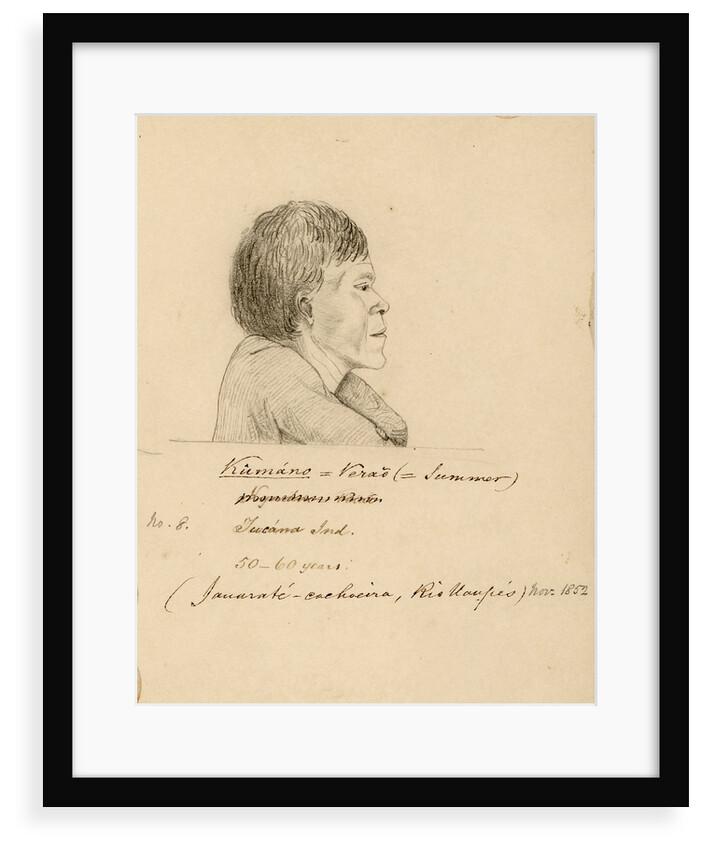 Kumáno = Veraõ (= Summer)
No. 8. Tucána Ind.
50–60 years.
(Jauaraté-cachoeira, Rio Uaupés) Nov. 1852